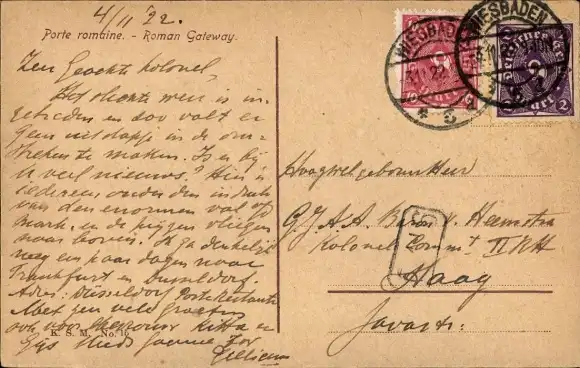 4/11 22.
Porte romaine. - Roman Gateway.
Zeer Geachte Kolonel,
Het slechte weer is in-
getreden en zoo valt er
geen uitstapje in de om-
streken te maken. Is er bij
u veel nieuws? Hier is
iedereen onder den indruk
van den enormen val der
mark, en de prijzen vliegen
naar boven. Ik ga denkelijk
nog een paar dagen naar
Frankfurt en Dusseldorf.
Adres: Düsseldorf Poste Restante
Met zeer veel groeten
ook voor Mevrouw
en
Gijs steeds
K. S. M. No. 16
WIESBADEN
3.11.22
WIESBADEN
Deutsches Reich
2
Hoogwelgeboren Heer
G.J.A.A. Baron v. Heemstra
Kolonel Komm II RH
Haag
Javastr: